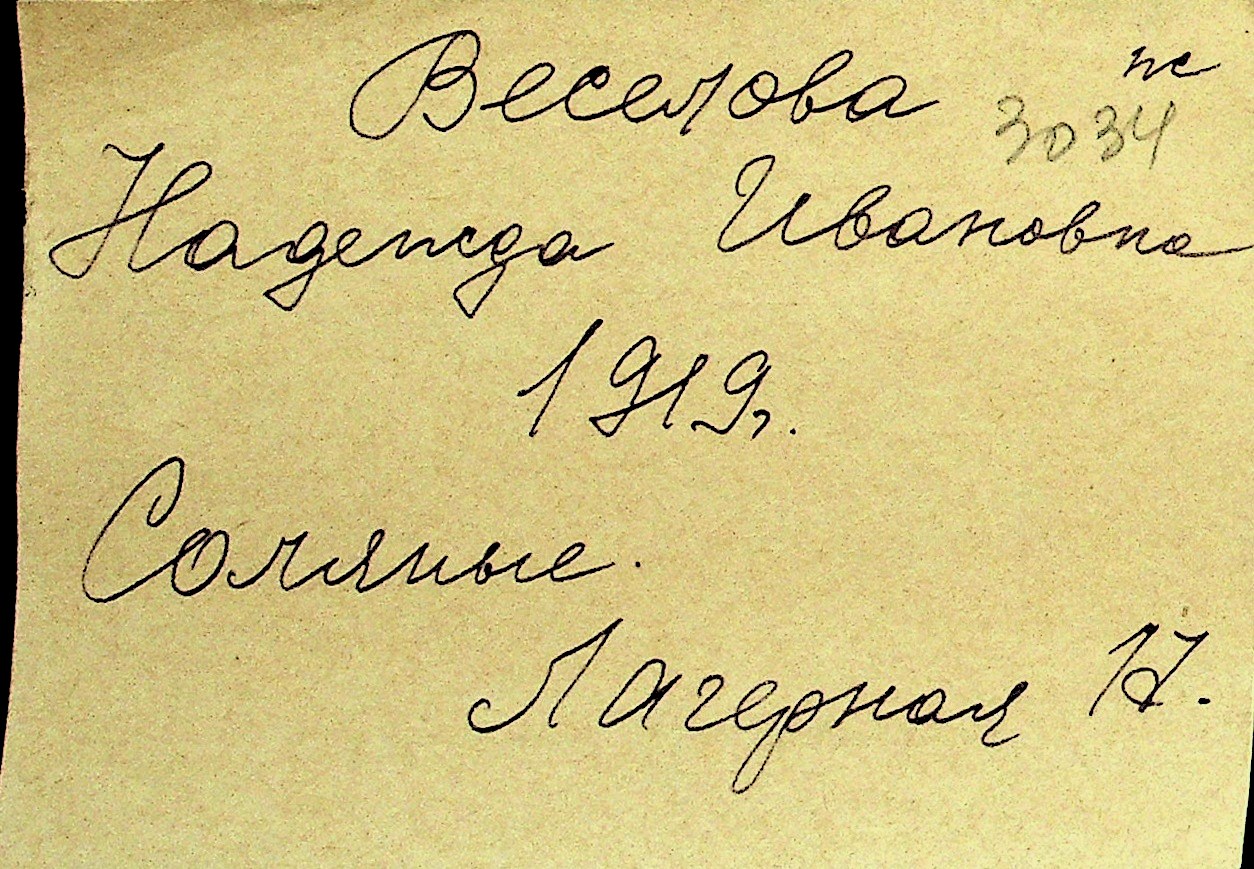 Веселова ж
3034
Надежда Ивановна
1919г.
Соляные.
Лагерная 17.